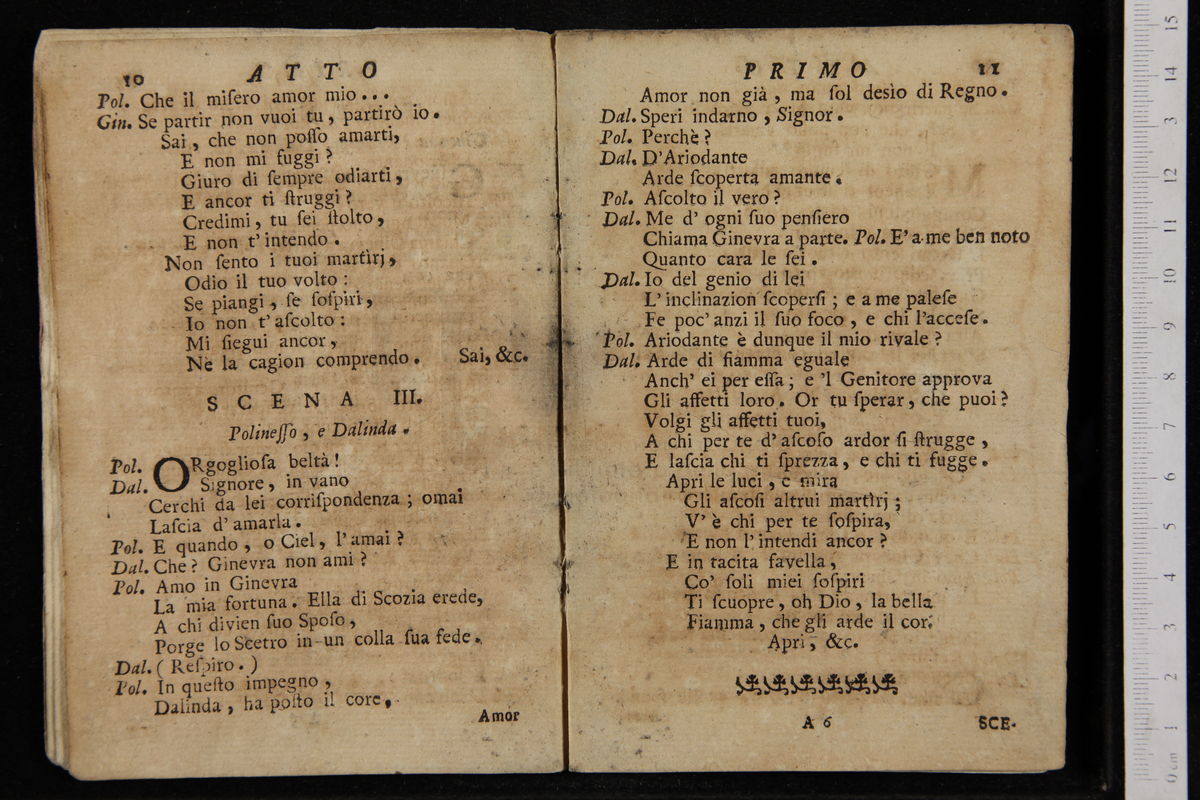 10 ATTO
Pol. Che il miſero amor mio...
Gin. Se partir non vuoi tu, partirò io.
Sai, che non poſſo amarti,
E non mi fuggi?
Giuro di ſempre odiarti,
E ancor ti ſtruggi?
Credimi, tu ſei ſtolto,
E non t'intendo.
Non ſento i tuoi martìrj,
Odio il tuo volto:
Se piangi, ſe ſoſpiri,
Io non t'aſcolto:
Mi ſiegui ancor,
Nè la cagion comprendo. Sai, &c.
SCENA III.
Polineſſo, e Dalinda.
Pol. ORgoglioſa beltà!
Dal. Signore, in vano
Cerchi da lei corriſpondenza; omai
Laſcia d'amarla.
Pol. E quando, o Ciel, l'amai?
Dal. Che? Ginevra non ami?
Pol. Amo in Ginevra
La mia fortuna. Ella di Scozia erede,
A chi divien ſuo Spoſo,
Porge lo Scetro in un colla ſua fede.
Dal. (Reſpiro.)
Pol. In queſto impegno,
Dalinda, ha poſto il core,
Amor
PRIMO 11
Amor non già, ma ſol desìo di Regno.
Dal. Speri indarno, Signor.
Pol. Perchè?
Dal. D'Ariodante
Arde ſcoperta amante.
Pol. Aſcolto il vero?
Dal. Me d' ogni ſuo penſiero
Chiama Ginevra a parte. Pol. E' a me ben noto
Quanto cara le ſei.
Dal. Io del genio di lei
L' inclinazion ſcoperſi; e a me paleſe
Fe poc' anzi il ſuo foco, e chi l'acceſe.
Pol. Ariodante è dunque il mio rivale?
Dal. Arde di fiamma eguale
Anch' ei per eſſa; e 'l Genitore approva
Gli affetti loro. Or tu ſperar, che puoi?
Volgi gli affetti tuoi,
A chi per te d' aſcoſo ardor ſi ſtrugge,
E laſcia chi ti ſprezza, e chi ti fugge.
Apri le luci, e mira
Gli aſcoſi altrui martìrj;
V' è chi per te ſoſpira,
E non l' intendi ancor?
E in tacita favella,
Co' ſoli miei ſoſpiri
Ti ſcuopre, oh Dio, la bella
Fiamma, che gli arde il cor.
Apri, &c.
A 6 SCE-
0 cm 1 2 3 4 5 6 7 8 9 10 11 12 3 14 15